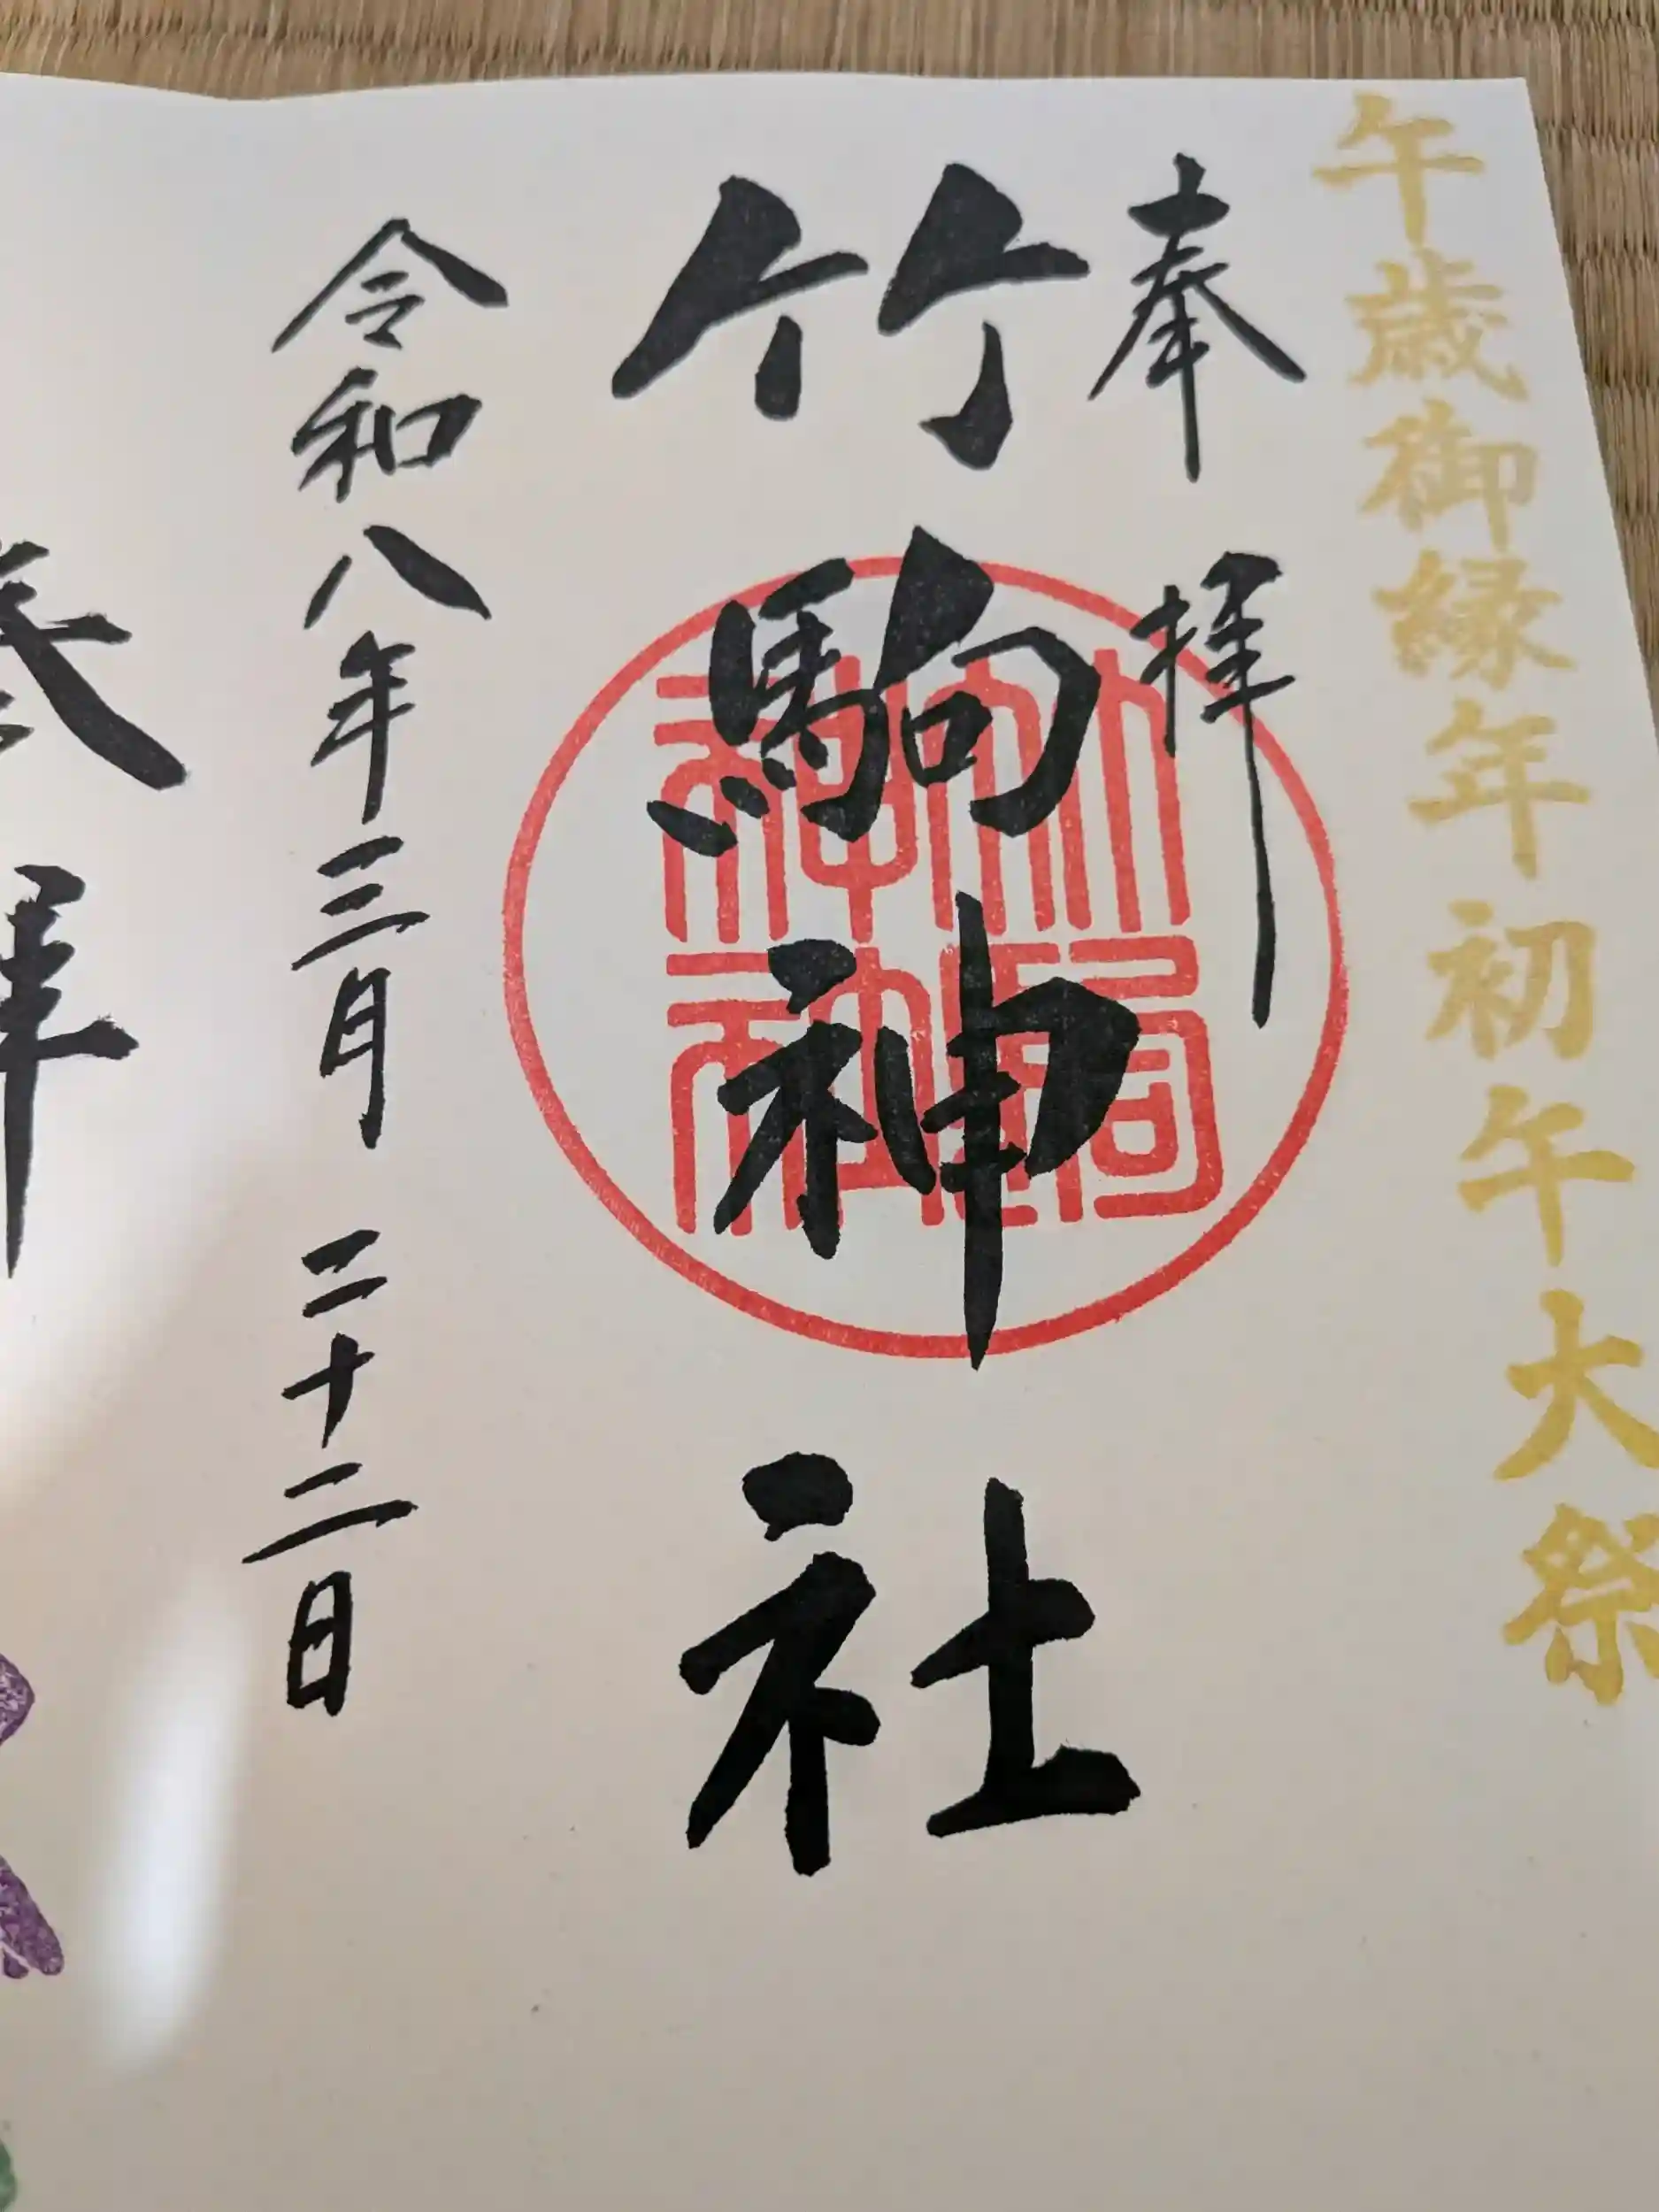 午歳御縁年初午大祭
奉拝
竹駒神社
竹駒神社
令和八年三月二十二日
奉拝